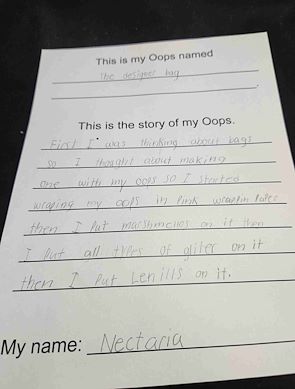 This is my Oops named
the designer bag
This is the story of my Oops.
First I was thinking about bags
so I thoght about making
one with my oops so I started
wraping my oops in Pink wrapin Pater
then I Put marshmellos on it then
I Put all types of gliter on it
then I Put Lenills on it.
My name: Nectaria